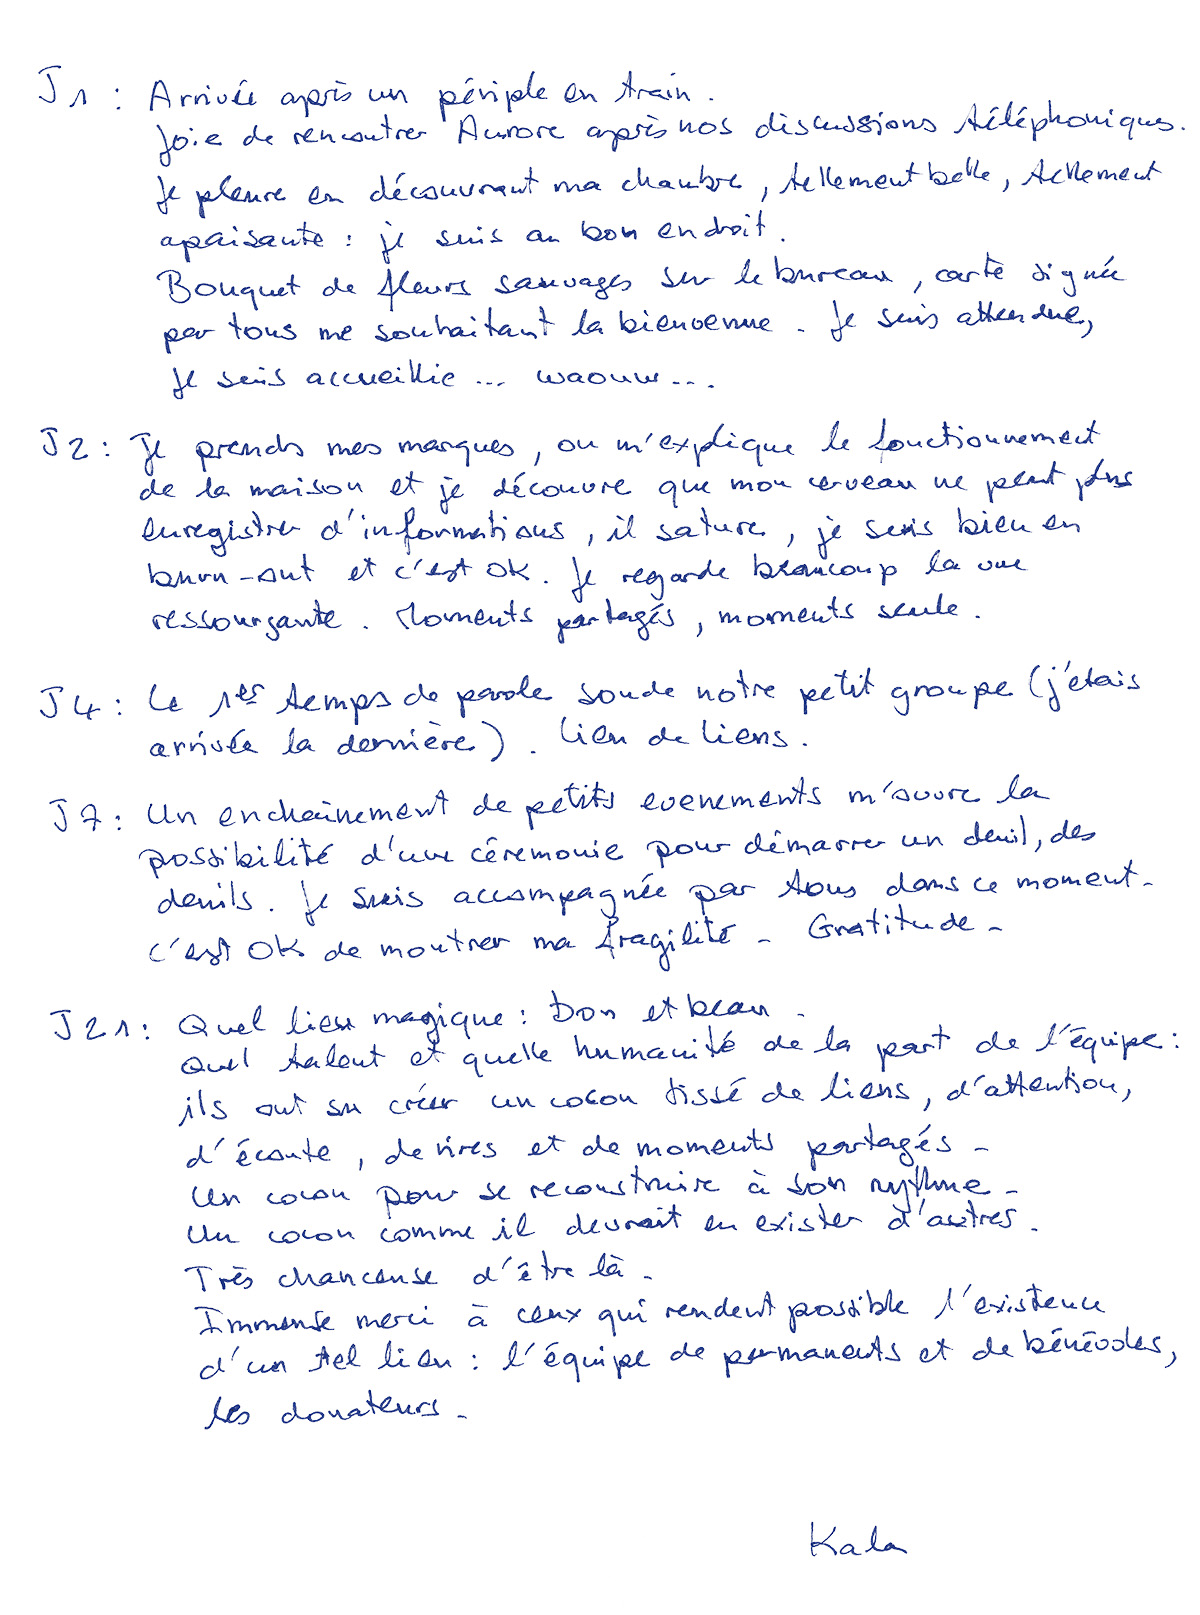 J1 : Arrivée après un périple en train.
Joie de rencontrer Aurore après nos discussions téléphoniques.
Je pleure en découvrant ma chambre, tellement belle, tellement
apaisante : je suis au bon endroit.
Bouquet de fleurs sauvages sur le bureau, carte signée
par tous me souhaitant la bienvenue. Je suis attendue,
je suis accueillie ... waouw ...
J2 : Je prends mes marques, on m'explique le fonctionnement
de la maison et je découvre que mon cerveau ne peut plus
enregistrer d'informations, il sature, je suis bien en
burn-out et c'est OK. Je regarde beaucoup la vue
ressourçante. Moments partagés, moments seule.
J4 : Le 1er temps de parole soude notre petit groupe (j'étais
arrivée la dernière). Lieu de liens.
J7 : Un enchaînement de petits evenements m'ouvre la
possibilité d'une cérémonie pour démarrer un deuil, des
deuils. Je suis accompagnée par tous dans ce moment -
C'est OK de montrer ma fragilité - Gratitude -
J21 : Quel lieu magique : Bon et beau -
Quel talent et quelle humanité de la part de l'équipe :
ils ont su créer un cocon tissé de liens, d'attention,
d'écoute, de rires et de moments partagés -
Un cocon pour se reconstruire à son rythme -
Un cocon comme il devrait en exister d'autres.
Très chanceuse d'être là -
Immense merci à ceux qui rendent possible l'existence
d'un tel lieu : l'équipe de permanents et de bénévoles,
les donateurs -
Kala